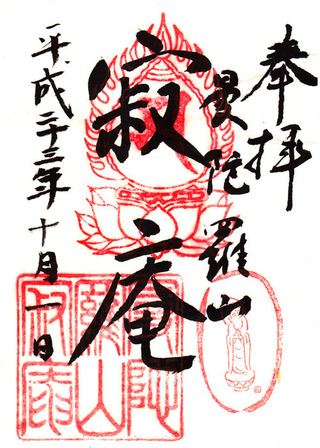 奉拝
曼陀羅山
寂庵
平成二十三年十月一日